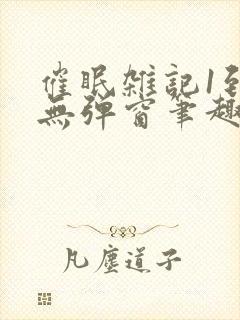 催眠雑記1至
無彈窗筆趣
凡塵道子